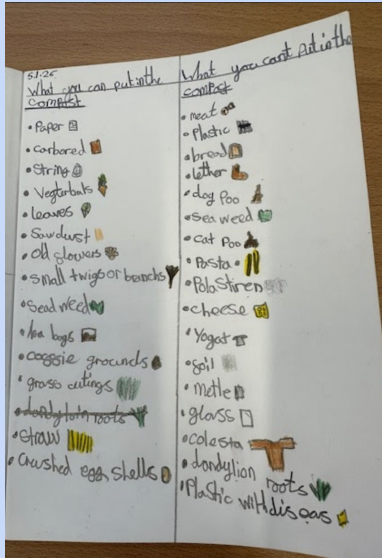 5.1.26
What you can put in the
compost
• Paper
• carbored
• String
• Vegterbals
• leaves
• Sawdust
• old flowers
• small twigs or branchs
• Sead weed
• tea bags
• coggie grounds
• grass cutings
• dandyloin roots
• straw
• Crushed egg shells
What you cant Put in the
compost
• meat
• Plastic
• bread
• lether
• dog Poo
• sea weed
• cat Poo
• Pasta
• Polastiren
• cheese
• Yogat
• soil
• metle
• glass
• colesta
• dandylion roots
• Plastic with diseas